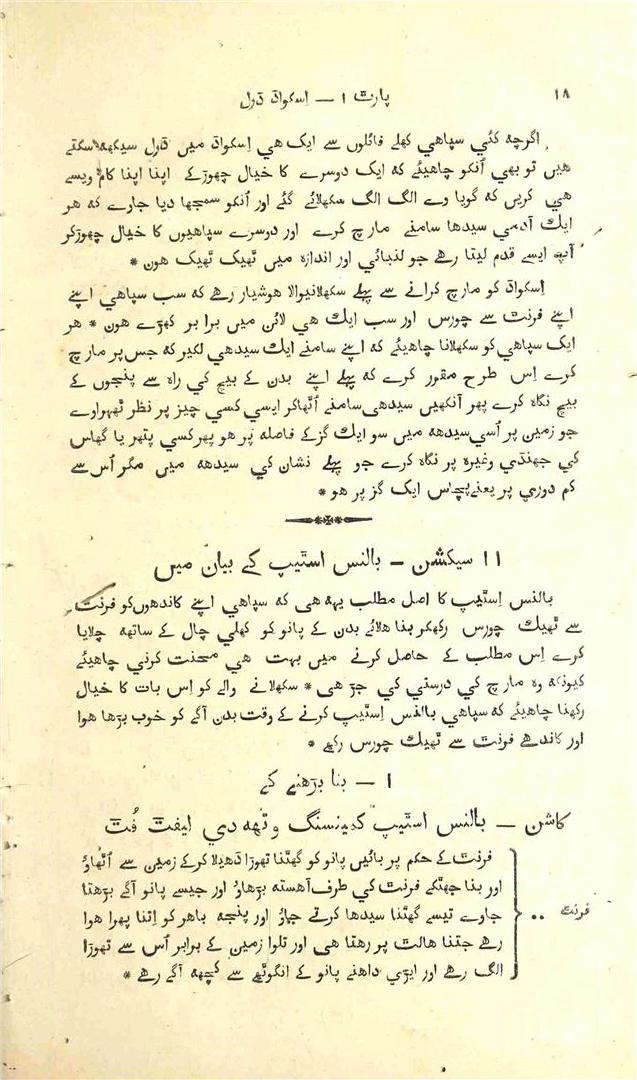 ۱۸ پارٹ ۱ — اِسکواڈ ڈرل
اگرچه کئي سپاهي کھلے فائلوں سے ایک هي اِسکواڈ میں ڈرل سیکھه سکتے
هیں تو بھي اُنکو چاهیئے که ایک دوسرے کا خیال چھوڑکے اپنا اپنا کام ویسے
هي کریں که گویا وے الگ الگ سکھلائے گئے اور اُنکو سمجھا دیا جاوے که هر
ایك آدمي سیدھا سامنے مارچ کرے اور دوسرے سپاهیوں کا خیال چھوڑکر
آپ ایسے قدم لیتا رهے جو لنبائي اور اندازه میں ٹھیک ٹھیک هون *
اِسکواڈ کو مارچ کرانے سے پہلے سکھلانیوالا هوشیار رهے که سب سپاهي اپنے
اپنے فرنٹ سے چورس اور سب ایك هي لائن میں برابر کھڑے هون * هر
ایک سپاهي کو سکھلانا چاهیئے که اپنے سامنے ایك سیدھي لکیر که جس پر مارچ
کرے اِس طرح مقرر کرے که پہلے اپنے بدن کے بیچ کي راه سے پنجوں کے
بیچ نگاه کرے پھر آنکھیں سیدھي سامنے اُٹھاکر ایسي کسي چیز پر نظر ٹھہراوے
جو زمین پر اُسي سیدھه میں سو ایك گز کے فاصله پر هو پھر کسي پتھر یا گھاس
کي جھنڈي وغیره پر نگاه کرے جو پہلے نشان کي سیدھه میں مگر اُس سے
کم دوري پر یعنے پچاس ایک گز پر هو *
۱۱ سیکشن — بالنس اسٹیپ کے بیان میں
بالنس اِسٹیپ کا اصل مطلب یهه هی که سپاهي اپنے کاندھوں کو فرنٹ
سے ٹھیك چورس رکھکر بنا هلائے بدن کے پانو کو کھلي چال کے ساتھه چلایا
کرے اِس مطلب کے حاصل کرنے میں بہت هي محنت کرني چاهیئے
کیونکه وه مارچ کي درستي کي جڑ هی * سکھلانے والے کو اِس بات کا خیال
رکھنا چاهیئے که سپاهي بالنس اِسٹیپ کرنے کے وقت بدن آگے کو خوب بڑھا هوا
اور کاندھے فرنٹ سے ٹھیك چورس رکھے *
۱ — بنا بڑھنے کے
کاشن — بالنس اسٹیپ کمینسنگ وٹھه دي لیفٹ فُٹ
فرنٹ کے حکم پر بائیں پانو کو گھٹنا تھوڑا ڈھیلا کرکے زمین سے اُٹھاؤ
اور بنا جھٹکے فرنٹ کي طرف آهسته بڑھاؤ اور جیسے پانو آگے بڑھتا
فرنٹ .. جاوے تیسے گھٹنا سیدھا کرتے جاؤ اور پنجه باهر کو اِتنا پھرا هوا
رهے جتنا هالٹ پر رهتا هی اور تلوا زمین کے برابر اُس سے تھوڑا
الگ رهے اور ایڑي داهنے پانو کے انگوٹھے سے کچھه آگے رهے *